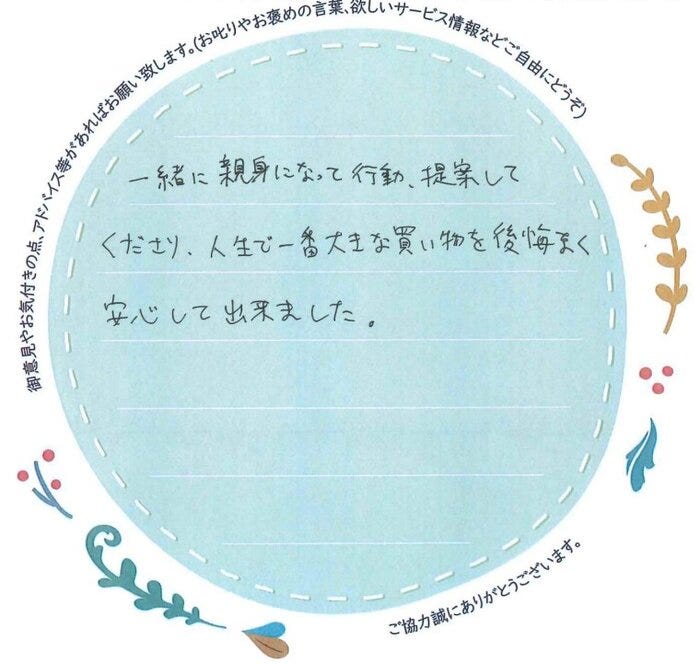 御意見やお気付きの点、アドバイス等があればお願い致します。(お叱りやお褒めの言葉、欲しいサービス情報などご自由にどうぞ)
一緒に親身になって行動、提案して
くださり、人生で一番大きな買い物を後悔まく
安心して出来ました。
ご協力誠にありがとうございます。